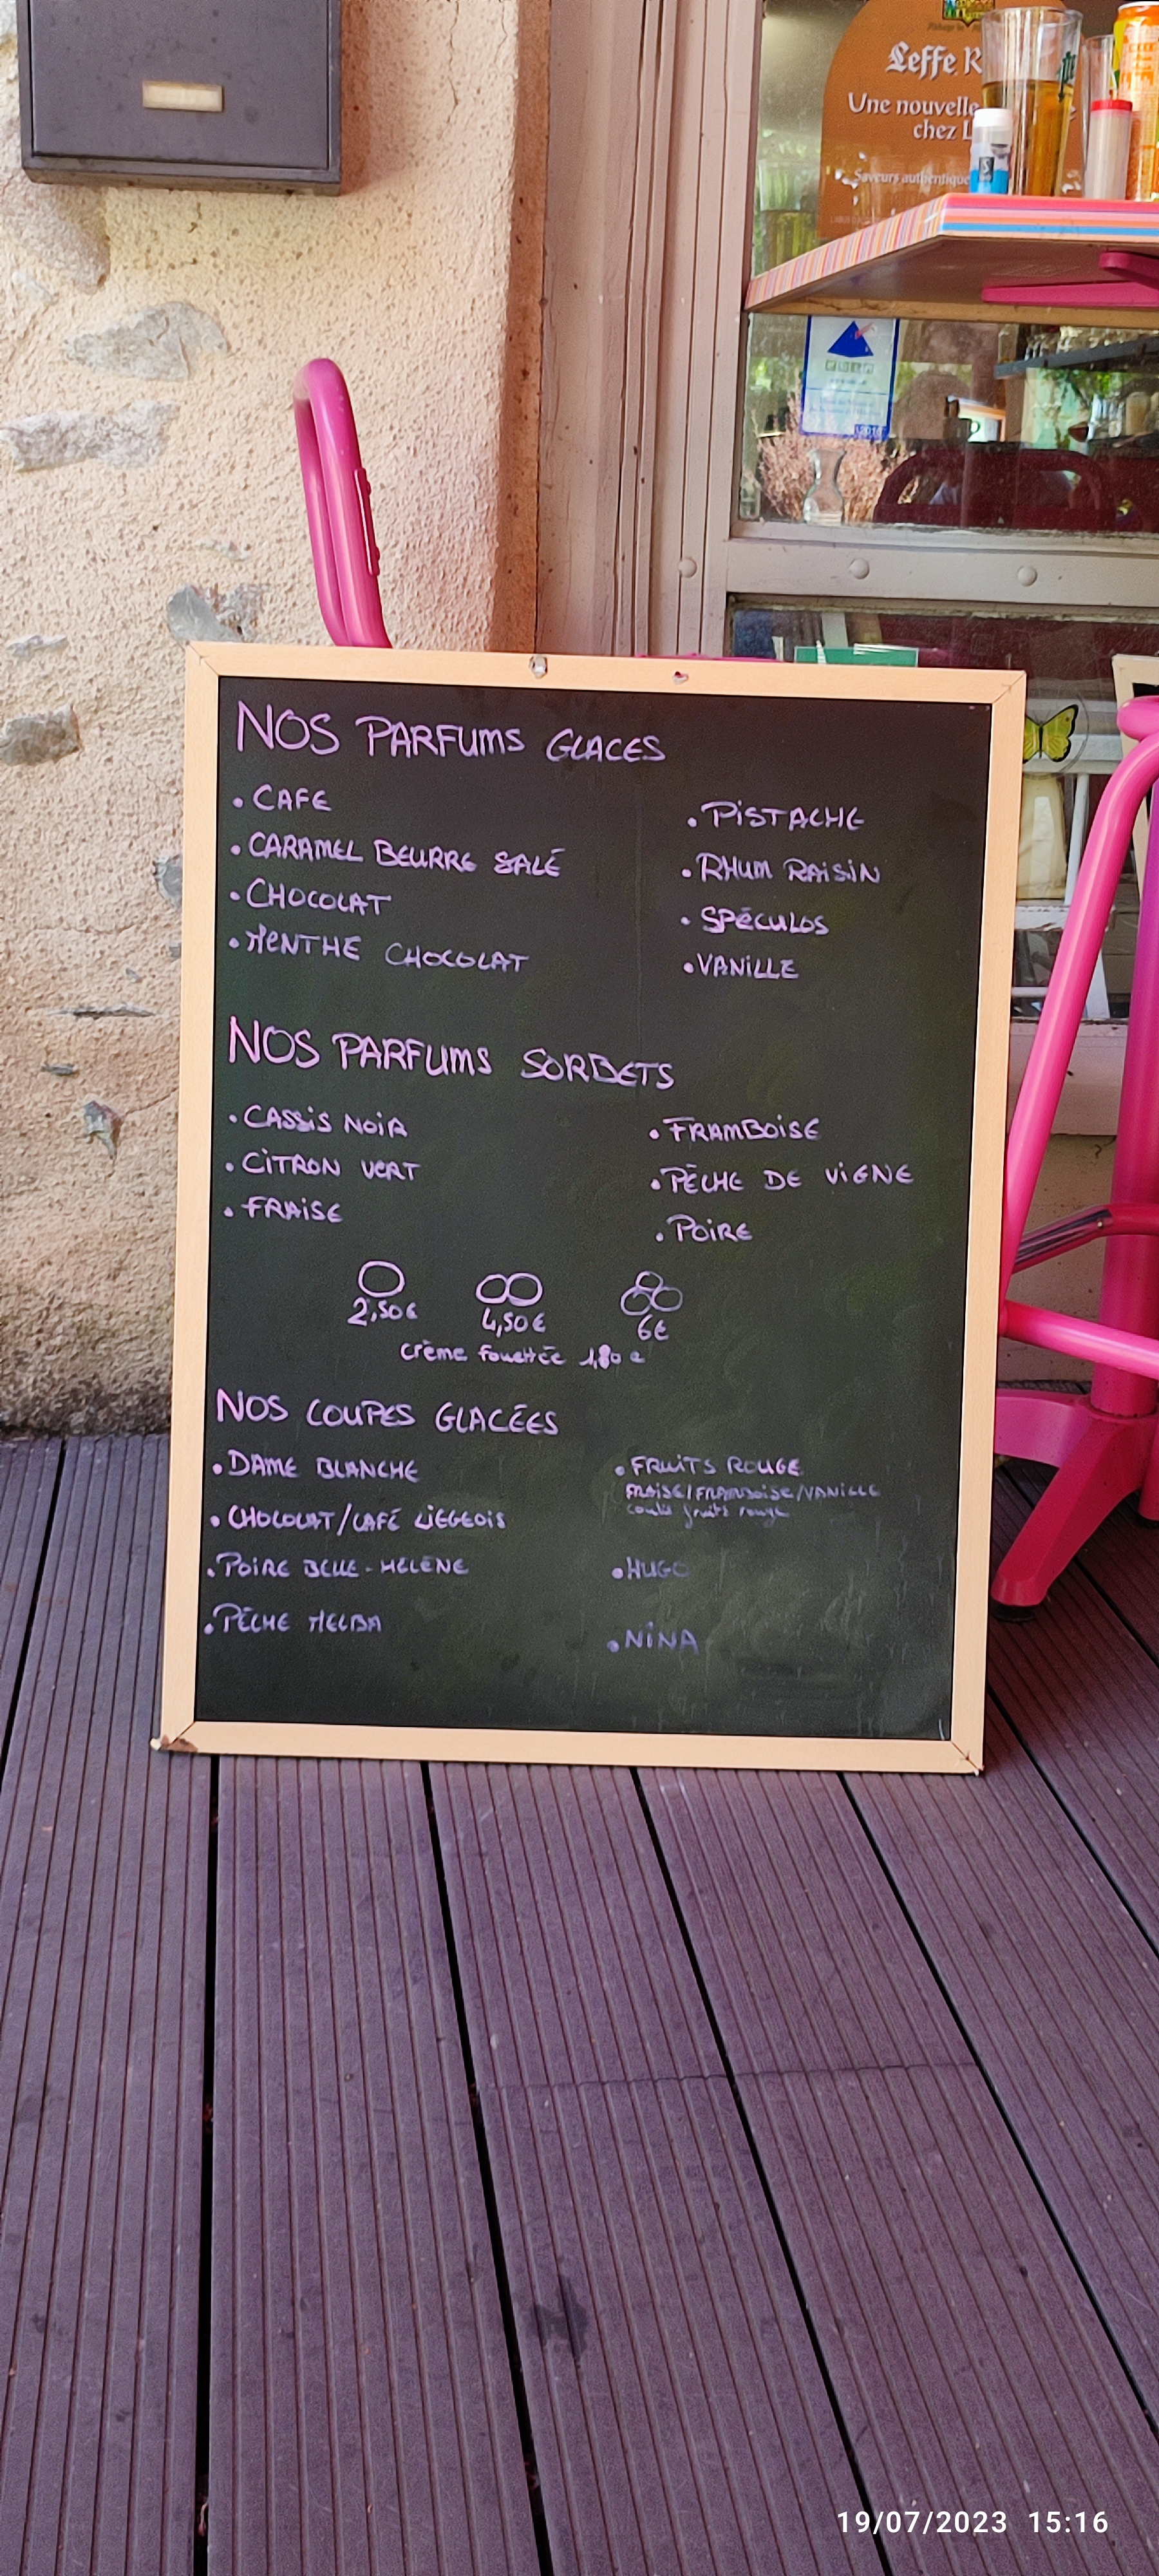 Leffe R
Une nouvelle
chez L
Saveurs authentique
NOS PARFUMS GLACES
• CAFE
• CARAMEL BEURRE SALÉ
• CHOCOLAT
• MENTHE CHOCOLAT
• PISTACHE
• RHUM RAISIN
• SPÉCULOS
• VANILLE
NOS PARFUMS SORBETS
• CASSIS NOIR
• CITRON VERT
• FRAISE
• FRAMBOISE
• PÊCHE DE VIGNE
• POIRE
2,50€ 4,50€ 6€
crème fouettée 1,80€
NOS COUPES GLACÉES
• DAME BLANCHE
• CHOCOLAT/CAFÉ LIÉGEOIS
• POIRE BELLE-HÉLÈNE
• PÊCHE MELBA
• FRUITS ROUGE
FRAISE/FRAMBOISE/VANILLE
coulis fruits rouge
• HUGO
• NINA
19/07/2023 15:16